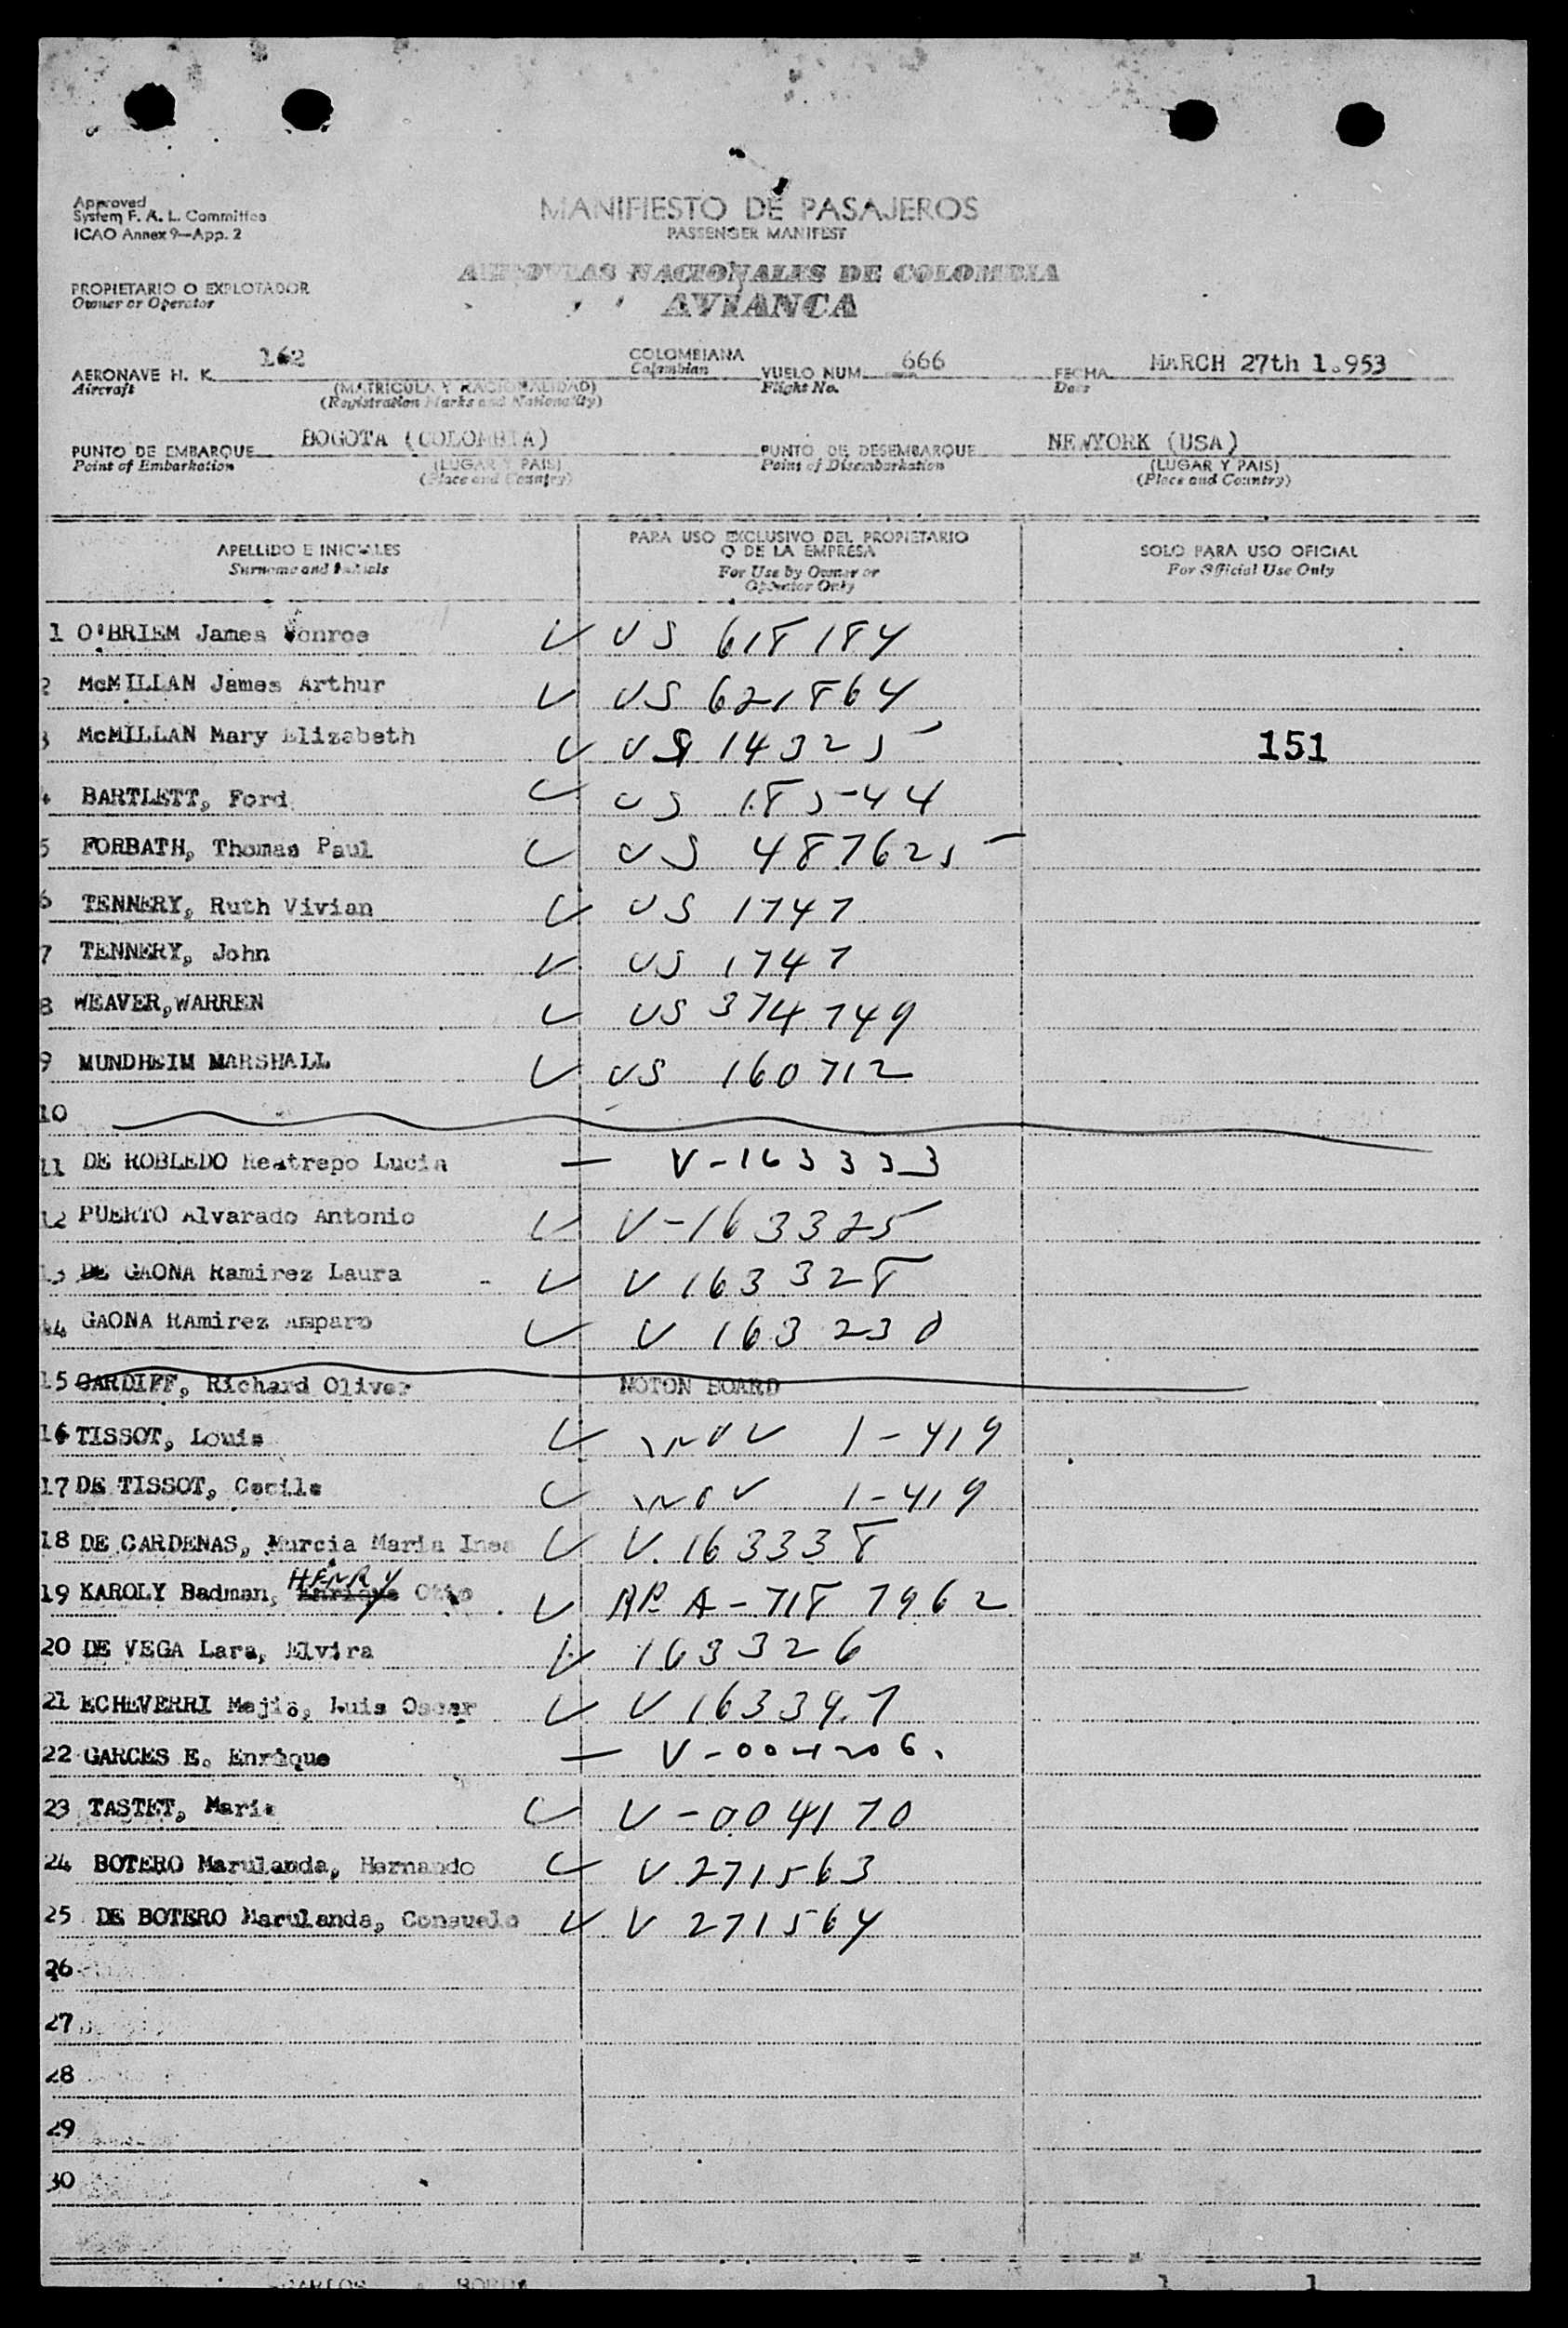 Approved
System F. A. L. Committee
ICAO Annex 9—App. 2
MANIFIESTO DE PASAJEROS
PASSENGER MANIFEST
PROPIETARIO O EXPLOTADOR
Owner or Operator
AEROVIAS NACIONALES DE COLOMBIA
AVIANCA
AERONAVE H. K. 162 COLOMBIANA VUELO NUM. 666 FECHA MARCH 27th 1.953
Aircraft (MATRICULA Y NACIONALIDAD) Colombian Flight No. Date
(Registration Marks and Nationality)
PUNTO DE EMBARQUE BOGOTA (COLOMBIA) PUNTO DE DESEMBARQUE NEWYORK (USA)
Point of Embarkation (LUGAR Y PAIS) Point of Disembarkation (LUGAR Y PAIS)
(Place and Country) (Place and Country)
APELLIDO E INICIALES PARA USO EXCLUSIVO DEL PROPIETARIO SOLO PARA USO OFICIAL
Surname and Initials O DE LA EMPRESA For Official Use Only
For Use by Owner or
Operator Only
1 O'BRIEM James Monroe US 618184
2 McMILLAN James Arthur US 621864
3 McMILLAN Mary Elizabeth US 14325 151
4 BARTLETT, Ford US 18544
5 FORBATH, Thomas Paul US 487625
6 TENNERY, Ruth Vivian US 1747
7 TENNERY, John US 1747
8 WEAVER, WARREN US 374749
9 MUNDHEIM MARSHALL US 160712
10
11 DE ROBLEDO Restrepo Lucia — V-163333
12 PUERTO Alvarado Antonio V-163325
13 DE GAONA Ramirez Laura - V 163328
14 GAONA RAmirez Amparo V 163230
15 CARDIFF, Richard Oliver NOTON BOARD
16 TISSOT, Louis 1-419
17 DE TISSOT, Cecile 1-419
18 DE CARDENAS, Murcia Maria Ines V. 163338
HENRY
19 KAROLY Badman, Enrique Otto A-718 7962
20 DE VEGA Lara, Elvira 163326
21 ECHEVERRI Mejio, Luis Oscar V 163397
22 GARCES E. Enrique — V-004206.
23 TASTET, Marie V-004170
24 BOTERO Marulanda, Hernando V 271563
25 DE BOTERO Marulanda, Consuelo V 271564
26
27
28
29
30
1 1